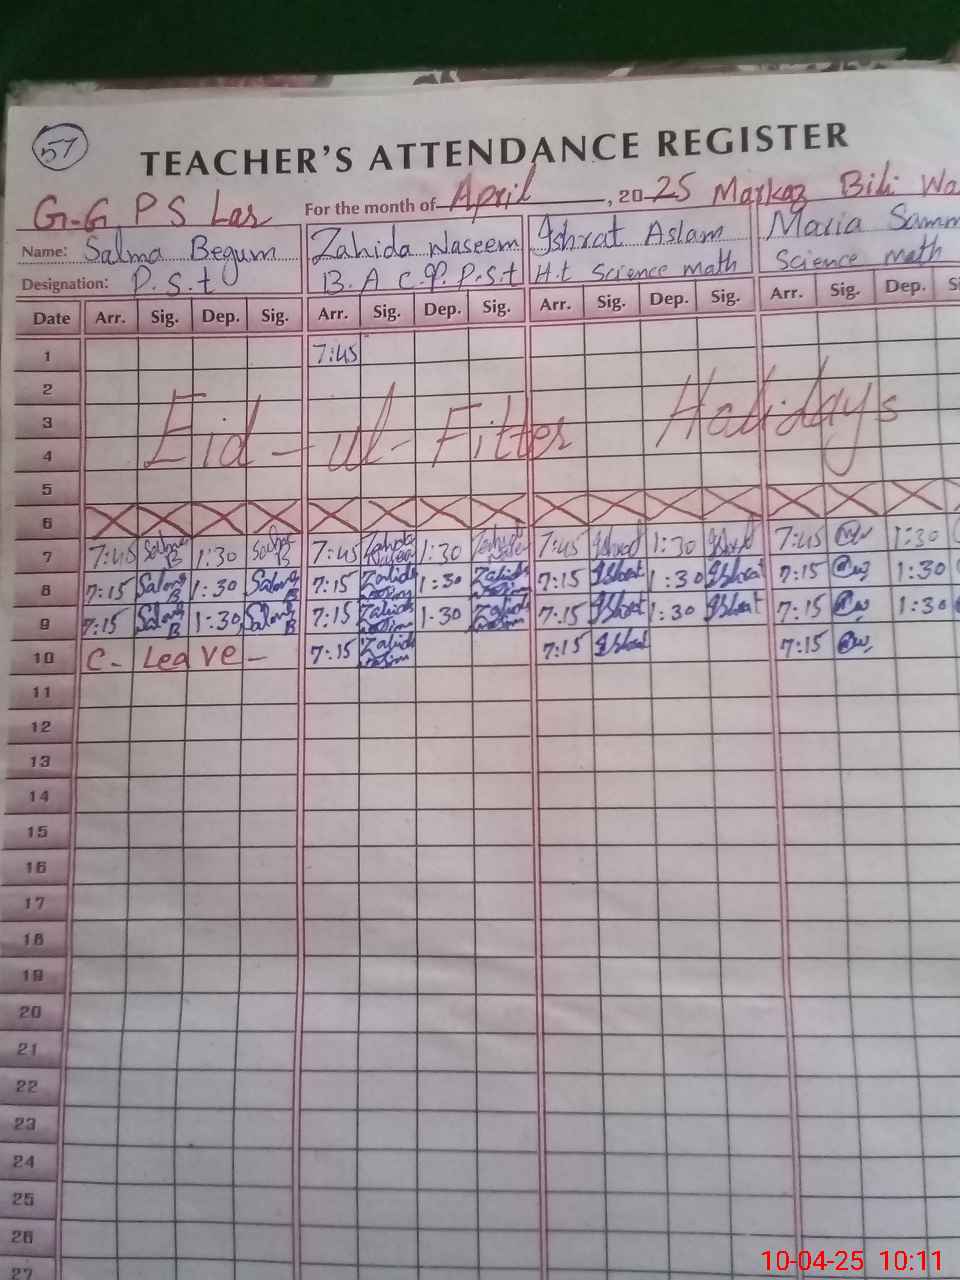 57
TEACHER'S ATTENDANCE REGISTER
G.G P S Las For the month of April, 2025 Markaz Bili Wa
Name: Salma Begum Zahida Naseem Ishrat Aslam Maria Samm
Designation: P.S.t B.A C.P. P.S.t H.t Science math Science math
Date Arr. Sig. Dep. Sig. Arr. Sig. Dep. Sig. Arr. Sig. Dep. Sig. Arr. Sig. Dep. Si
1 7:45
2
3 Eid-ul-Fitter Holidays
4
5
6
7 7:45 Salma B 1:30 Salma B 7:45 Zahida Naseem 1:30 Zahida 7:45 Ishrat 1:30 Ishrat 7:45 1:30
8 7:15 Salma B 1:30 Salma B 7:15 Zahida 1:30 Zahida 7:15 Ishrat 1:30 Ishrat 7:15 1:30
9 7:15 Salma B 1:30 Salma B 7:15 Zahida 1.30 Zahida 7:15 Ishrat 1:30 Ishrat 7:15 1:30
10 C-Leave- 7:15 Zahida 7:15 Ishrat 7:15
11
12
13
14
15
16
17
18
19
20
21
22
23
24
25
26
27
10-04-25 10:11